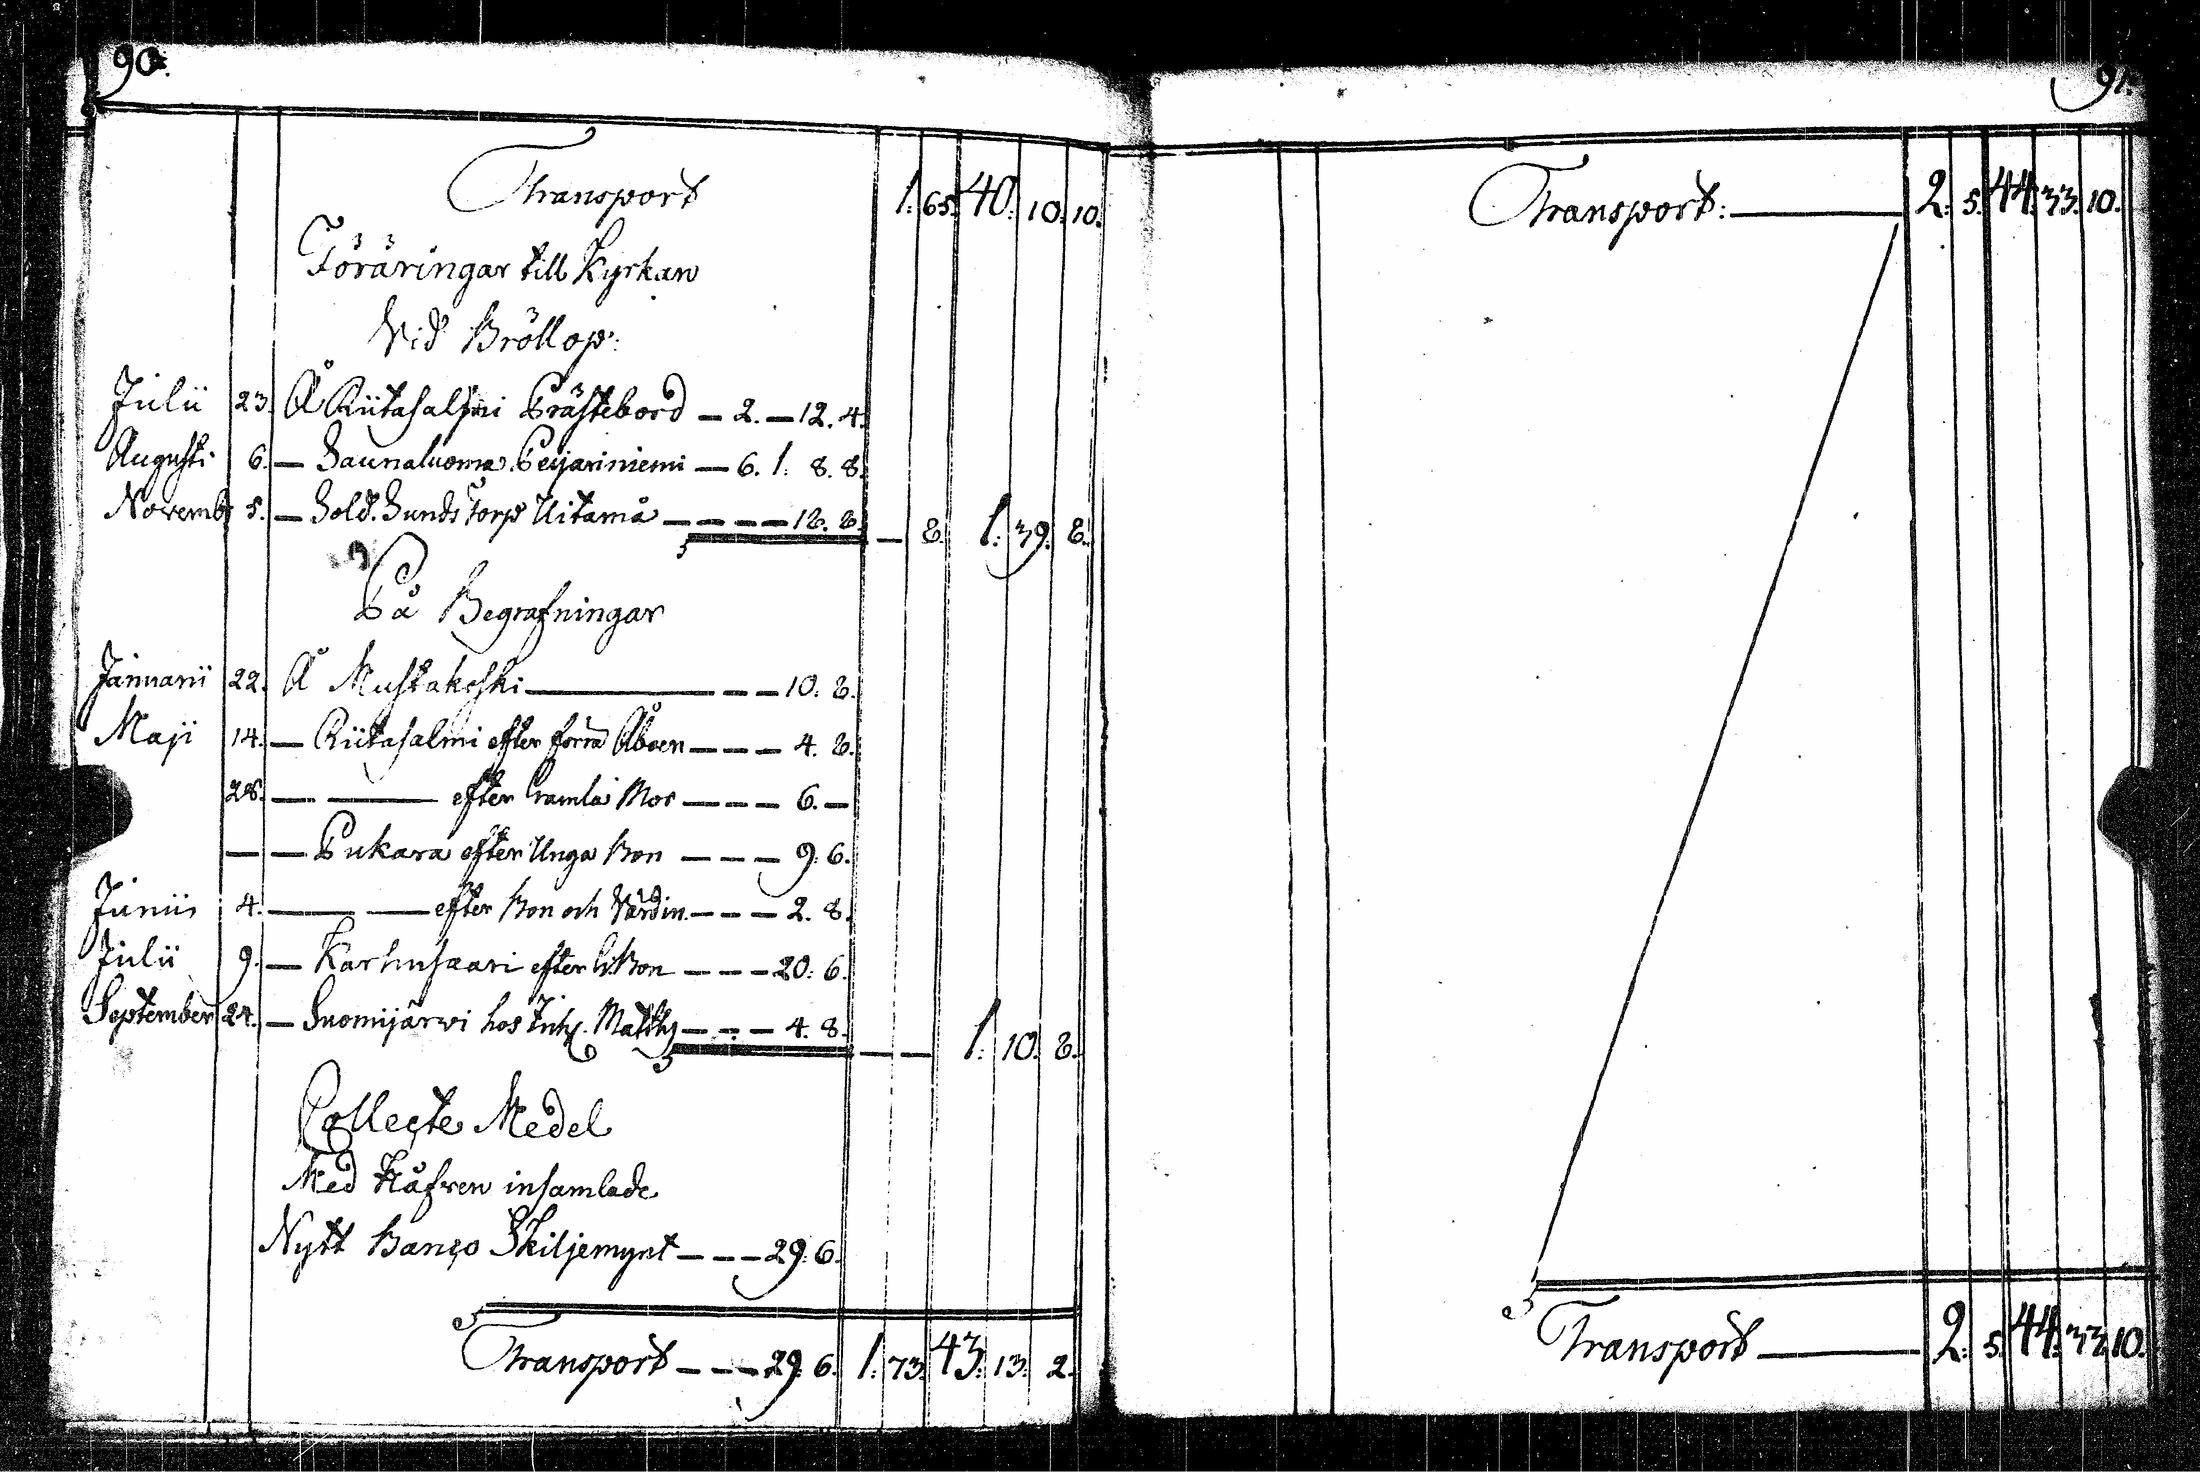 90.
Transport 1. 65. 40. 10. 10.
Föräringar till Kyrkan
Vid Bröllop:
Julii 23. Å Riitasalmi Prästebord — 2. — 12. 4.
Augusti 6. — Saunaluoma Peijariniemi — 6. 1. 8. 8.
Novemb 5. — Sold. Sunds Torp Uitama — — — — 18. 8. — 8. 1. 39. 8.
På Begrafningar
Januarii 22. Å Mustakoski — — — 10. 8.
Maji 14. — Riitasalmi efter förra Åboen — — — 4. 8.
28. — — efter Gamla Mor — — — 6. —
— — Pukara efter Unga Bon — — — 9. 6.
Junii 4. — — efter Bon och Värdin — — — 2. 8.
Julii 9. — Karhusaari efter G. Bon — — — 20. 6.
September 24. — Suomijärwi hos Inh. Matths — — — 4. 8. — — 1. 10. 8.
Collecte Medel
Med Håfwen insamlade
Nytt Banco Skiljemynt — — — 29. 6.
Transport — — — 29. 6. 1. 73. 43. 13. 2.
91.
Transport: — 2. 5. 44. 33. 10.
Transport — 2. 5. 44. 33. 10.